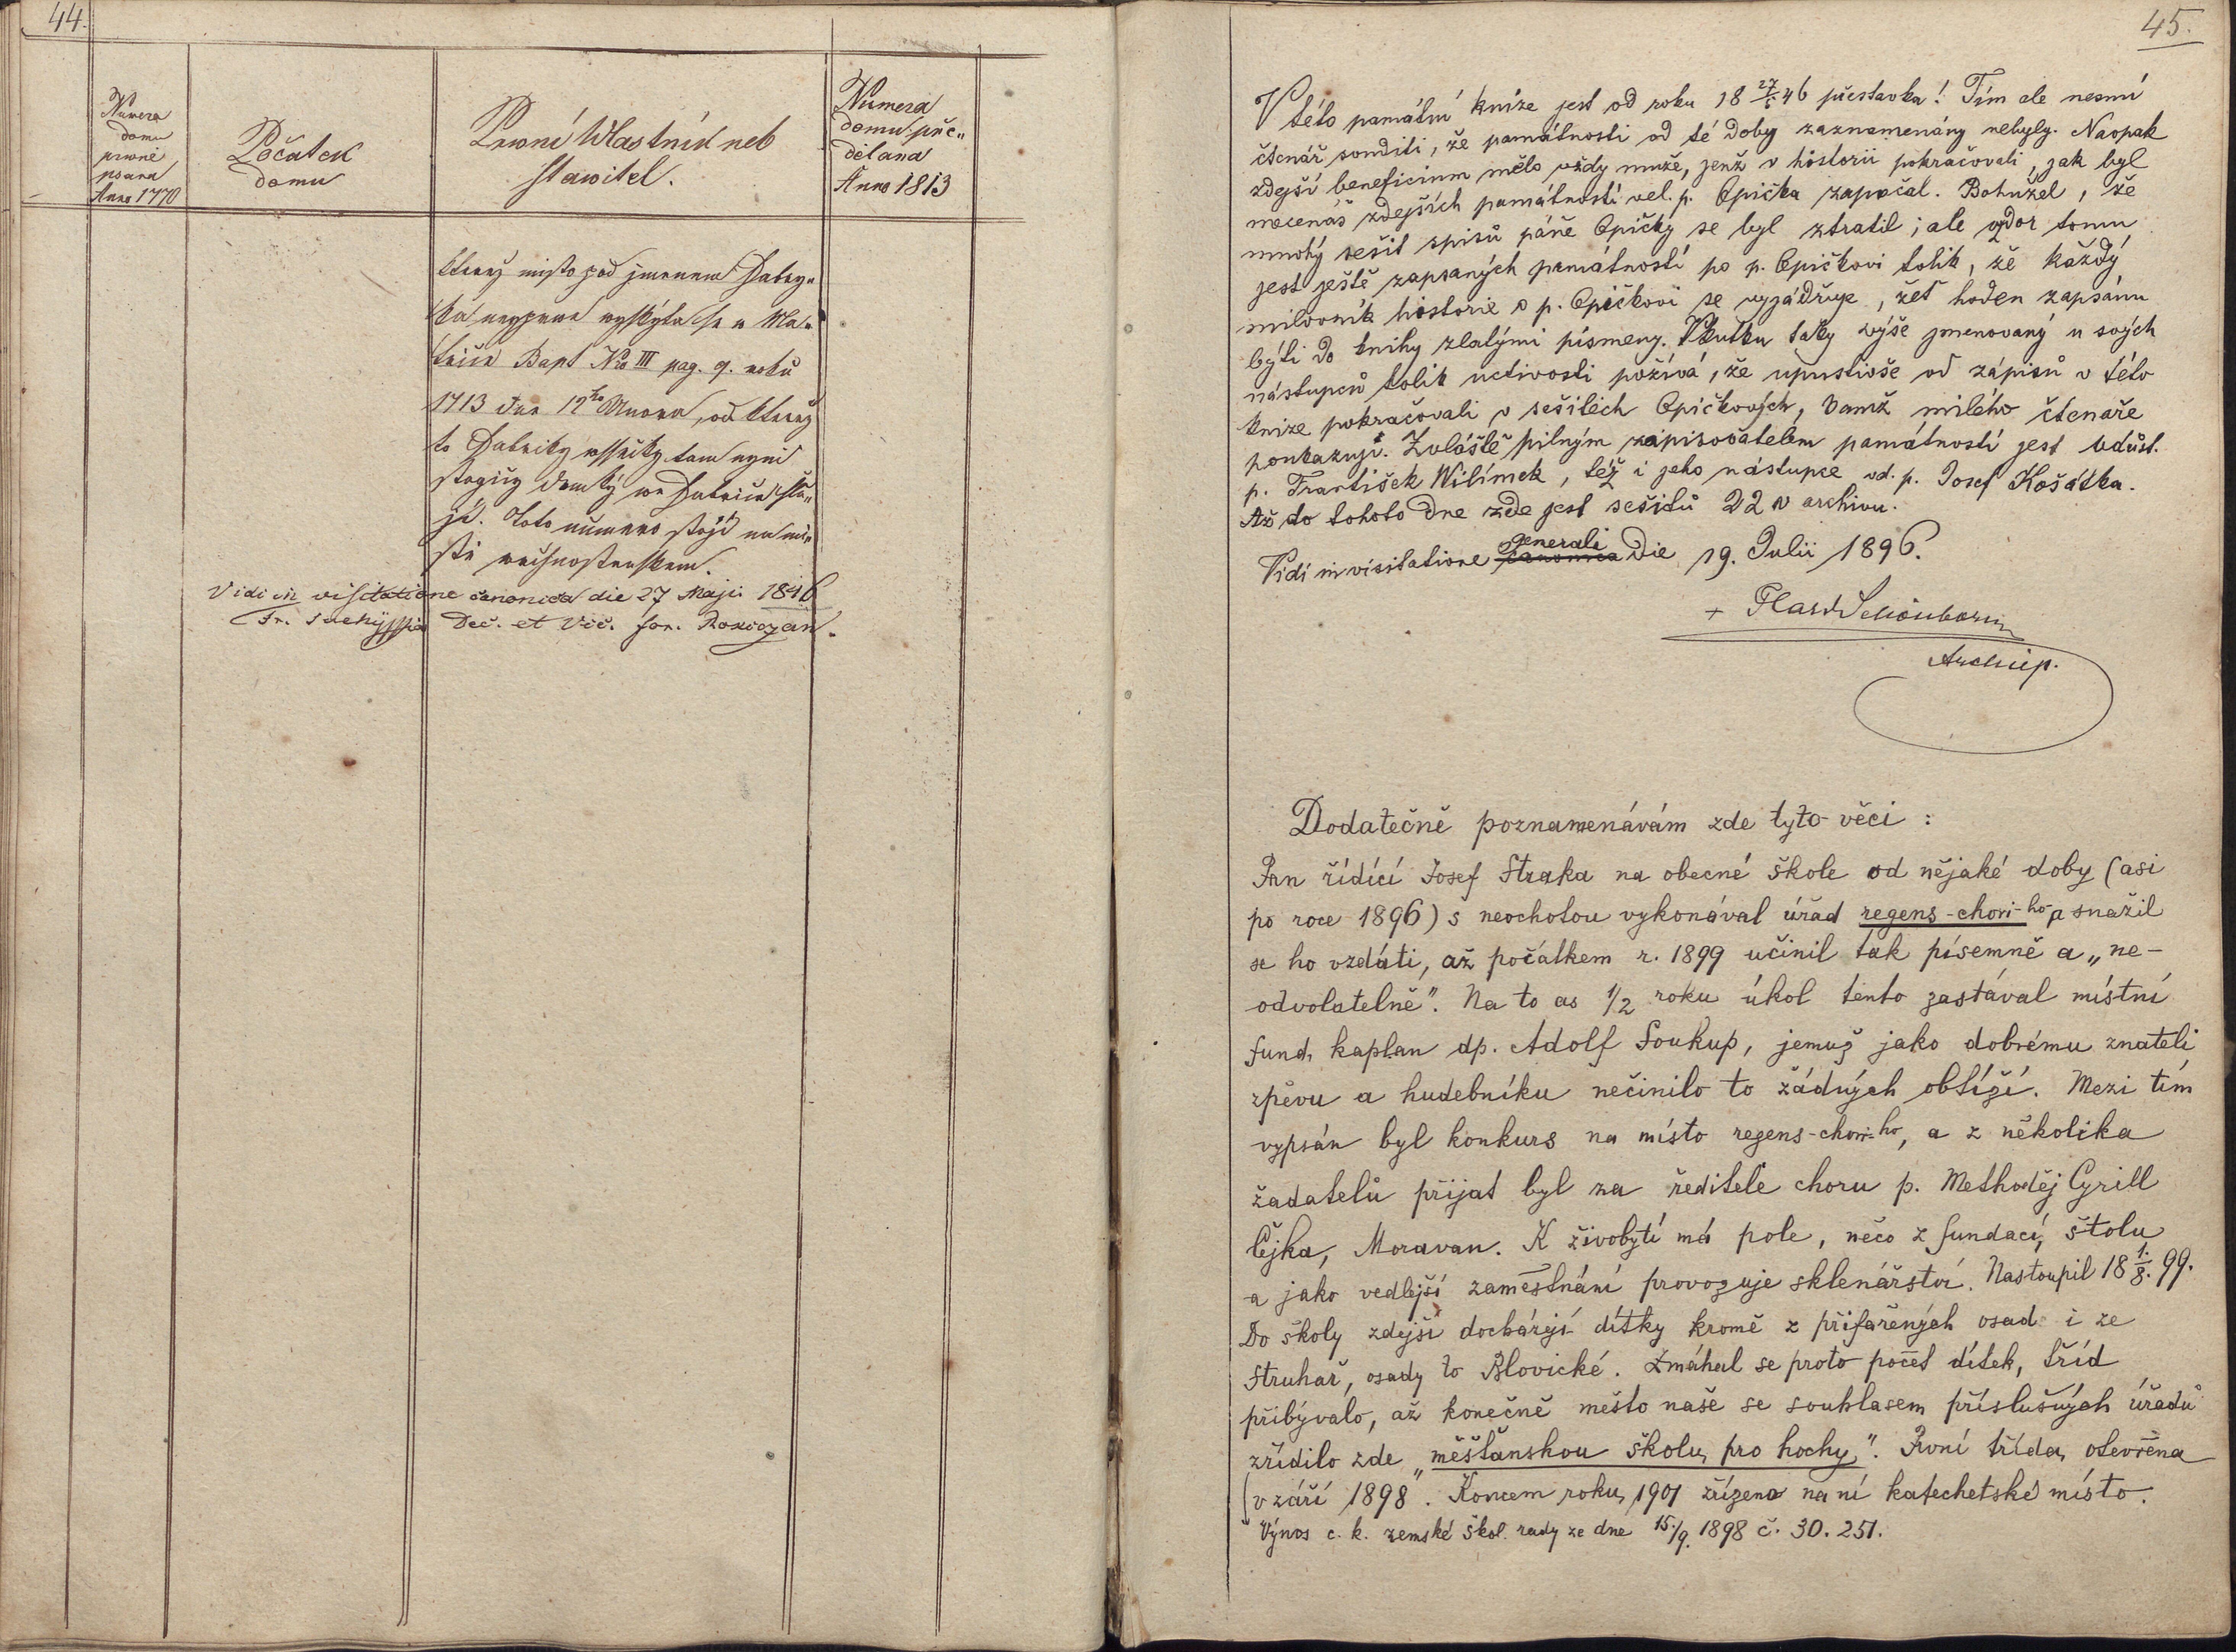 44.
Numera
domu
prwně
psana
Anno 1770
Počátek
domu
Prwní Wlastník neb
stawitel.
Numera
domu pře„
dělana
Anno 1813
který misto pod jmenem
neyprwe wyskýta se w Ma„
trice Bapt Nro III pag. 9. roku
1713 dne 12ho Unora, od který
to Fabriky wssicky tam nyni
stogicý domký we Fabrice slu„
gí. Toto numero stogí na mí„
stě
Vidi in visitatione canonica die 27 Maji 1846
Fr. Dec. et Vic. for. Rokiczan.
45.
V této památní knize jest od roku 18 27/5 46 přestávka! Tím ale nesmí
čtenář souditi, že památnosti od té doby zaznamenány nebyly. Naopak
zdejší beneficium mělo vždy muže, jenž v historii pokračovali, jak byl
mecenáš zdejších památností vel. p. Opička započal. Bohužel, že
mnohý sešit spisů páně Opičky se byl ztratil; ale vzdor tomu
jest ještě zapsaných památností po p. Opičkovi tolik, že každý
milovník historie o p. Opičkovi se vyjádřuje, žeť hoden zapsánu
býti do knihy zlatými písmeny. Vskutku taky výše jmenovaný u svých
nástupců tolik uctivosti požívá, že upustivše od zápisů v této
knize pokračovali v sešitech Opičkových, kamž milého čtenáře
poukazuji. Zvláště pilným zapisovatelem památností jest vdůst.
p. František Wilímek, též i jeho nástupce vd. p. Josef Košátka.
Až do tohoto dne zde jest sešitů 22 v archivu.
Vidi in visitatione canonica generali die 19. Julii 1896.
+ Card Schönborn
Archiep.
Dodatečně poznamenávám zde tyto věci:
Pan řídící Josef Straka na obecné škole od nějaké doby (asi
po roce 1896) s neochotou vykonával úřad regens-chori-ho a snažil
se ho vzdáti, až počátkem r. 1899 učinil tak písemně a „ne-
odvolatelně". Na to as 1/2 roku úkol tento zastával místní
fund. kaplan dp. Adolf Soukup, jemuž jako dobrému znateli
zpěvu a hudebníku nečinilo to žádných obtíží. Mezi tím
vypsán byl konkurs na místo regens-chori-ho, a z několika
žadatelů přijat byl za ředitele choru p. Methoděj Cyrill
Čejka, Moravan. K živobytí má pole, něco z fundací, štolu
a jako vedlejší zaměstnání provozuje sklenářství. Nastoupil 18 1./8. 99.
Do školy zdejší docházejí dítky kromě z přifařených osad i ze
Struhař, osady to Blovické. Zmáhal se proto počet dítek, tříd
přibývalo, až konečně město naše se souhlasem příslušných úřadů
zřídilo zde „měšťanskou školu pro hochy". První třída otevřena
v září 1898. Koncem roku 1901 zřízeno na ní katechetské místo.
Výnos c. k. zemské škol. rady ze dne 15./9. 1898 č. 30.251.